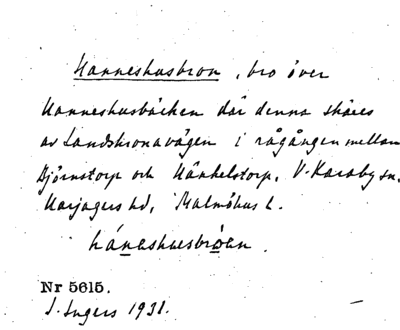 Hanneshusbron, bro över
Hanneshusbäcken där denna skäres
av Landskronavägen i rågången mellan
Björnstorp och Hänkelstorp, V. Karaby sn,
Harjagers hd, Malmöhus l.
Nr 5615.
I. Ingers 1931.